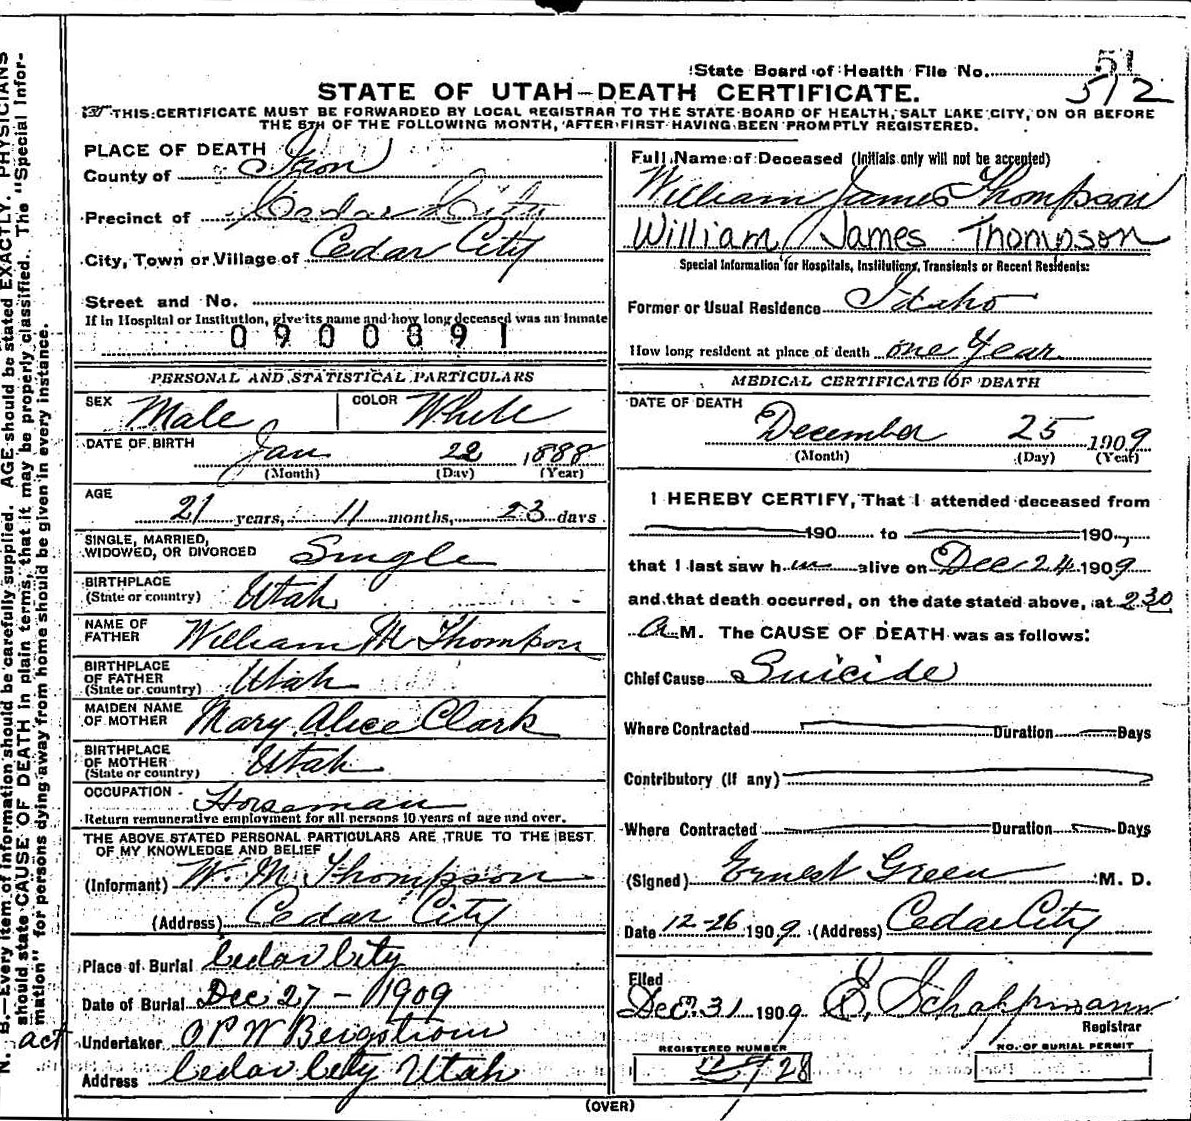 State Board of Health File No. 51
512
STATE OF UTAH—DEATH CERTIFICATE.
THIS CERTIFICATE MUST BE FORWARDED BY LOCAL REGISTRAR TO THE STATE BOARD OF HEALTH, SALT LAKE CITY, ON OR BEFORE
THE 5TH OF THE FOLLOWING MONTH, AFTER FIRST HAVING BEEN PROMPTLY REGISTERED.
PLACE OF DEATH
County of Iron
Precinct of Cedar City
City, Town or Village of Cedar City
Street and No.
If in Hospital or Institution, give its name and how long deceased was an inmate
0900891
PERSONAL AND STATISTICAL PARTICULARS
SEX Male COLOR White
DATE OF BIRTH Jan 22 1888
(Month) (Day) (Year)
AGE
21 years, 11 months, 23 days
SINGLE, MARRIED,
WIDOWED, OR DIVORCED Single
BIRTHPLACE
(State or country) Utah
NAME OF
FATHER William M Thompson
BIRTHPLACE
OF FATHER
(State or country) Utah
MAIDEN NAME
OF MOTHER Mary Alice Clark
BIRTHPLACE
OF MOTHER
(State or country) Utah
OCCUPATION Horseman
Return remunerative employment for all persons 10 years of age and over.
THE ABOVE STATED PERSONAL PARTICULARS ARE TRUE TO THE BEST
OF MY KNOWLEDGE AND BELIEF
(Informant) W. M. Thompson
(Address) Cedar City
Place of Burial Cedar City
Date of Burial Dec 27 - 1909
Undertaker W Bergstrom
Address Cedar City Utah
Full Name of Deceased (Initials only will not be accepted)
William James Thompson
William James Thompson
Special Information for Hospitals, Institutions, Transients or Recent Residents:
Former or Usual Residence Idaho
How long resident at place of death one Year
MEDICAL CERTIFICATE OF DEATH
DATE OF DEATH
December 25 1909
(Month) (Day) (Year)
I HEREBY CERTIFY, That I attended deceased from
190 to 190,
that I last saw him alive on Dec 24 1909
and that death occurred, on the date stated above, at 2 30
A M. The CAUSE OF DEATH was as follows:
Chief Cause Suicide
Where Contracted Duration Days
Contributory (If any)
Where Contracted Duration Days
(Signed) Ernest Green M. D.
Date 12-26 1909 (Address) Cedar City
Filed
Dec. 31 1909
Registrar
REGISTERED NUMBER 28
NO. OF BURIAL PERMIT
(OVER)
N. B.—Every item of information should be carefully supplied. AGE should be stated EXACTLY. PHYSICIANS
should state CAUSE OF DEATH in plain terms, that it may be properly classified. The "Special Infor-
mation" for persons dying away from home should be given in every instance.
act